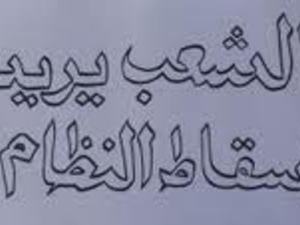 لشعب يريد
سقاط النظام